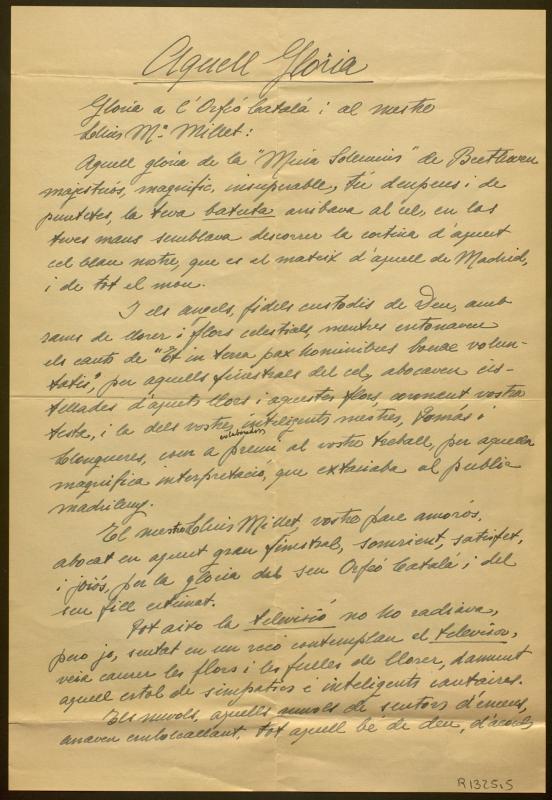 Aquell Gloria
Gloria a l'Orfeó Catalá i al mestre
Lluis Mª Millet:
Aquell gloria de la "Missa Solemnis" de Beethoven
majestuós, magnific, insuperable, tú dempeus i de
puntetes, la teva batuta arribava al cel, en las
teves mans semblava descorrer la cortina d'aquest
cel blau nostre, que es el mateix d'aquell de Madrid,
i de tot el mon.
I els angels, fidels custodis de Deu, amb
rams de llorer i flors celestials, mentres entonaven
els cants de "Et in terra pax hominibus bonae volun-
tatis," per aquells finestrals del cel, abocaven cis-
tellades d'aquets llors i aquestes flors, coronant vostra
testa, i la dels vostres inteligents mestres, Tomás i
colaboradors
Llongueres, com a premi al vostre treball, per aquella
magnifica interpretació, que extasiaba al public
madrileny.
El mestre Lluis Millet, vostre pare amorós,
abocat en aquest gran finestral, somrient, satisfet,
i joiós, per la gloria del seu Orfeó Catalá i del
seu fill estimat.
Tot aixo la televisió no ho radiava,
pero jo, sentat en un recó contemplan el televisor,
veia caurer les flors i les fulles de llorer, damunt
aquell estol de simpatics i inteligents cantaires.
Els nuvols, aquells nuvols de sentors d'encens,
anaven embolcallant, tot aquell bé de deu, d'acords
R1325,5